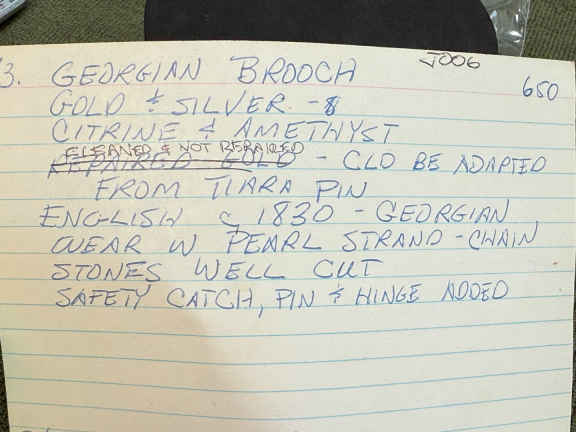 J006
650
3. GEORGIAN BROOCH
GOLD & SILVER - 8
CITRINE & AMETHYST
CLEANED & NOT REPAIRED
REPAIRED GOLD - CLD BE ADAPTED
FROM TIARA PIN
ENGLISH C 1830 - GEORGIAN
WEAR W PEARL STRAND - CHAIN
STONES WELL CUT
SAFETY CATCH, PIN & HINGE ADDED